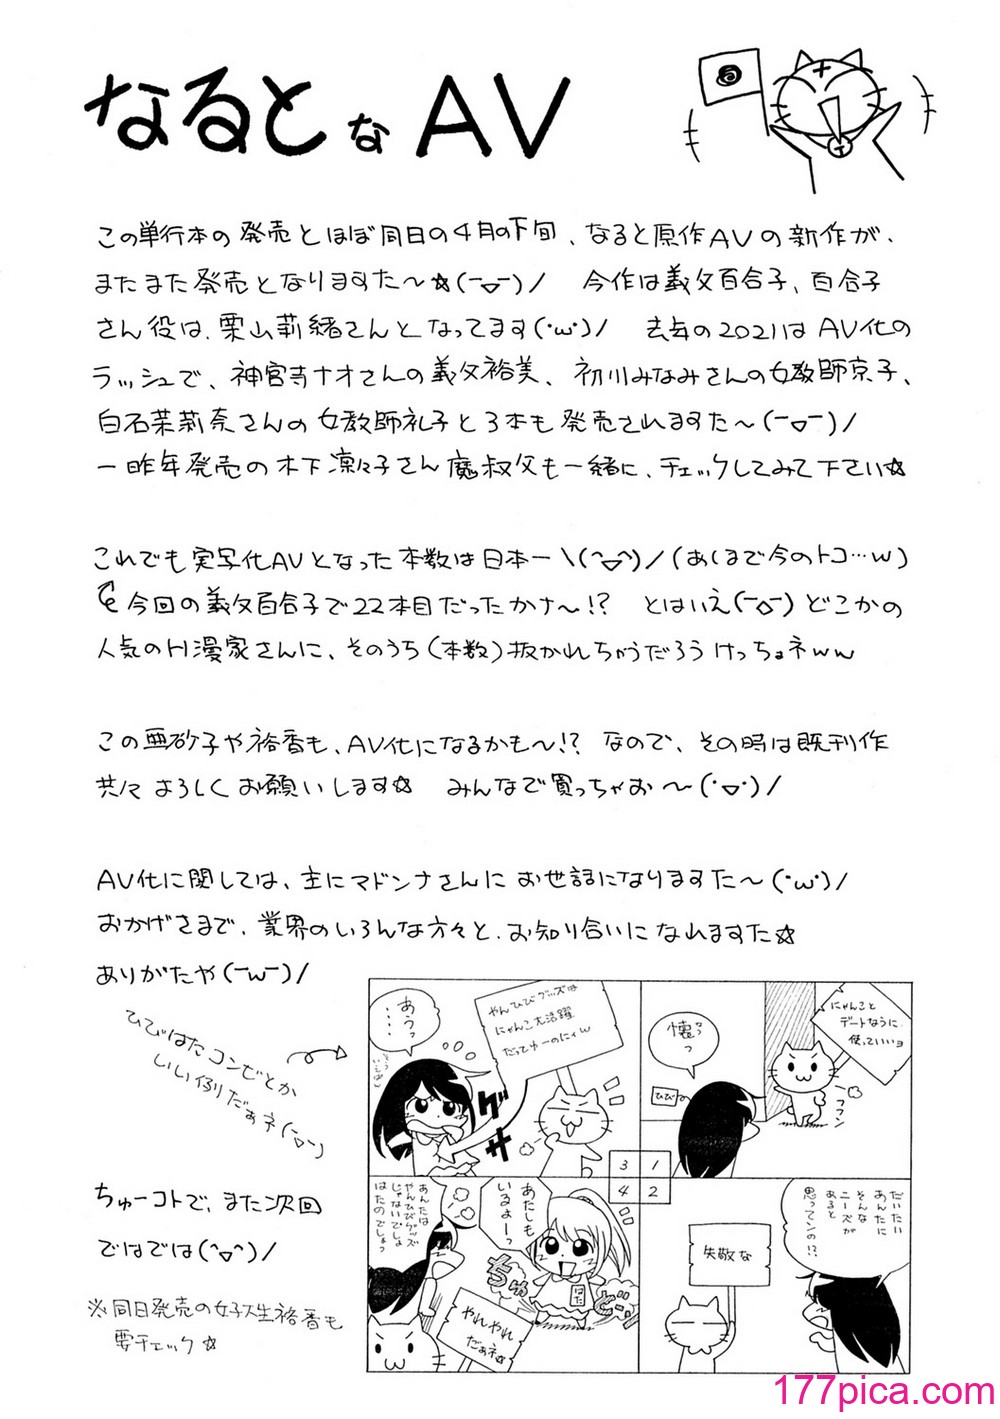 なるとなAV
この単行本の発売とほぼ同日の4月の下旬、なると原作AVの新作が、
またまた発売となりますた～☆(ｰ▽ｰ)/ 今作は義父百合子、百合子
さん役は、栗山莉緒さんとなってます(･ω･)/ 去年の2021はAV化の
ラッシュで、神宮寺ナオさんの義父裕美、初川みなみさんの女教師京子、
白石茉莉奈さんの女教師礼子と3本も発売されますた～(ｰ▽ｰ)/
一昨年発売の木下凛々子さん魔叔父も一緒に、チェックしてみて下さい☆
これでも実写化AVとなった本数は日本一\(^▽^)/(あくまで今のトコ…w)
今回の義父百合子で22本目だったかナ～!? とはいえ(ｰ▽ｰ)どこかの
人気のH漫家さんに、そのうち(本数)抜かれちゃうだろうけっちょネww
この亜砂子や裕香も、AV化になるかも～!? なので、その時は既刊作
共々よろしくお願いします☆ みんなで買っちゃお～(･▽･)/
AV化に関しては、主にマドンナさんにお世話になりますた～(･ω･)/
おかげさまで、業界のいろんな方々と、お知り合いになれますた☆
ありがたや(ｰωｰ)/
ひびはたコンビとか
いい例だぁネ(ｰ▽ｰ)
ちゅーコトで、また次回
ではでは(^▽^)/
※同日発売の女子大生裕香も
要チェック☆
にゃんこと
デートなうに
使っていいヨ
懐っ
ひび
フフン
だいたい
あんたに
そんな
ニーズが
あると
思ってンの!?
失敬な
やんひびグッズは
にゃんこ大活躍
だってゆーのにィw
あうっ
……
そういえば
グサ
あんたは
やんひびグッズ
じゃないでしょ
はたのでしょっ
あたしも
いるよーっ
はた
ちゅど
やれやれ
だぁネ☆
3 1
4 2
177pica.com